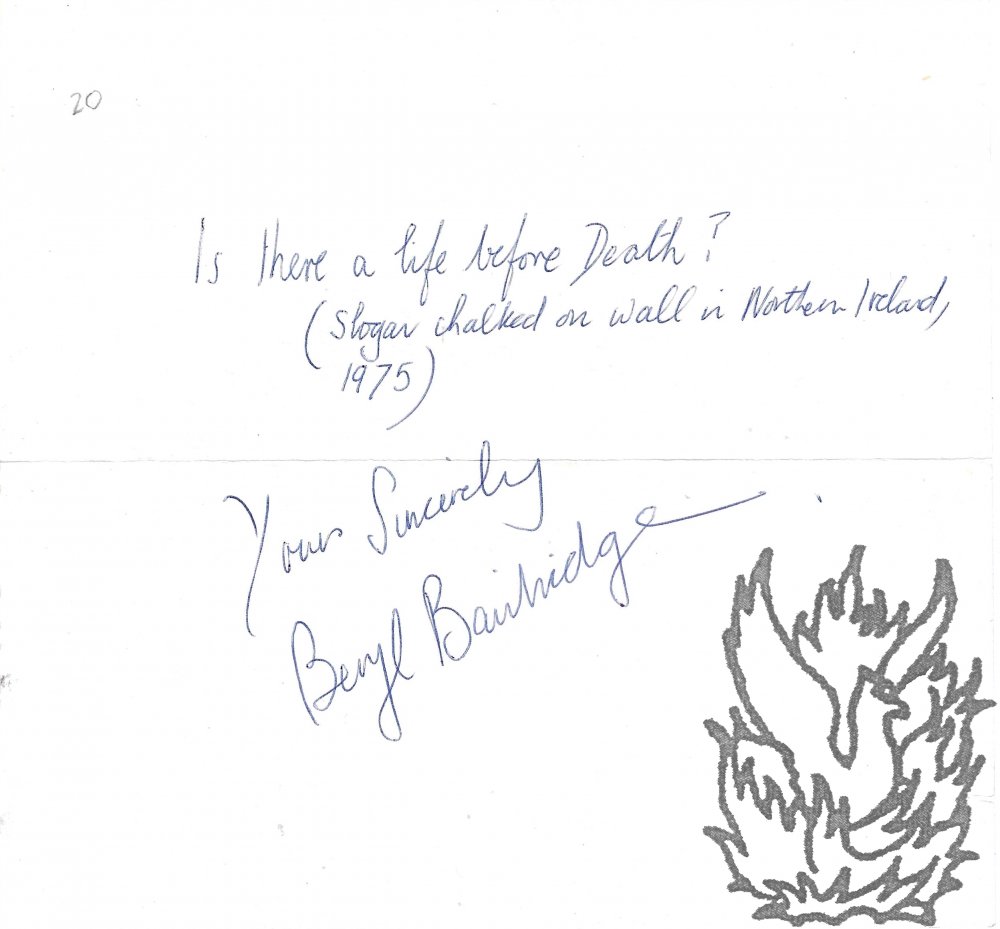 20
Is there a life before Death?
(Slogan chalked on wall in Northern Ireland,
1975)
Yours Sincerely
Beryl Bainbridge